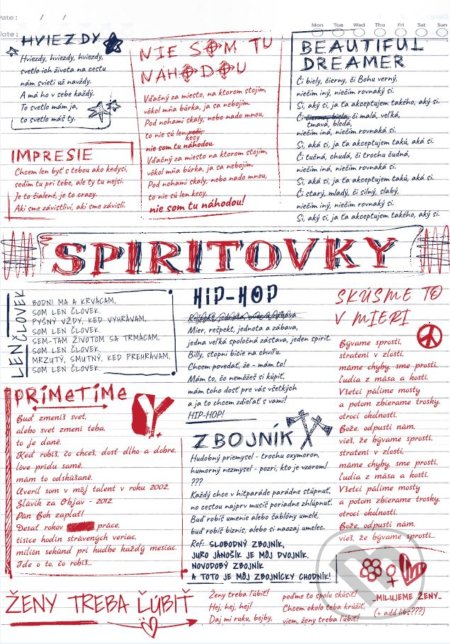 Date: / /
Date:
Mon Tue Wed Thu Fri Sat Sun
HVIEZDY
Hviezdy, hviezdy, hviezdy,
svetlo ich života na cestu
nám svieti už navždy.
A má ho v sebe každý.
To svetlo mám ja,
to svetlo máš ty.
NIE SOM TU
NAHODOU
Vďačný za miesto, na ktorom stojím,
vôkol mňa búrka, ja sa nebojím.
Pod nohami skaly, nebo nado mnou,
to nie sú len kecy
nie som tu náhodou!
Vďačný za miesto, na ktorom stojím,
vôkol mňa búrka, ja sa nebojím.
Pod nohami skaly, nebo nado mnou,
to nie sú len kecy,
nie som tu náhodou!
BEAUTIFUL
DREAMER
Či biely, čierny, či Bohu verný,
nietím iný, nietím rovnaký si.
Si, aký si, ja ťa akceptujem takého, aký si.
Či čierna, biela, či malá, veľká,
tmavá, bledá,
nietím iná, nietím rovnaká si.
Si, aká si, ja ťa akceptujem takú, aká si.
Či tučná, chudá, či trochu čudná,
nietím iná, nietím rovnaká si.
Si, aká si, ja ťa akceptujem takú, aká si.
Či starý, mladý, či silný, slabý,
nietím iný, nietím rovnaký si.
Si, aký si, ja ťa akceptujem takého, aký si.
IMPRESIE
Chcem len byť s tebou ako kedysi,
sedím tu pri tebe, ale ty tu nejsi.
Je to šialené, je to crazy.
Aký sme závistliví, aký sme závislí.
SPIRITOVKY
LEN ČLOVEK
BODNI MA A KRVÁCAM,
SOM LEN ČLOVEK.
PYŠNÝ VŽDY, KEĎ VYHRÁVAM,
SOM LEN ČLOVEK.
SEM-TAM ŽIVOTOM SA TRMÁCAM,
SOM LEN ČLOVEK.
MRZUTÝ, SMUTNÝ, KEĎ PREHRÁVAM,
SOM LEN ČLOVEK.
HIP-HOP
Mier, rešpekt, jednota a zábava,
jedna veľká spoločná zástava, jeden spirit.
Billy, stopni bicie na chvíľu.
Chcem povedať, že - mám to!
Mám to, čo nemôžeš si kúpiť,
mám toho dosť pre vás všetkých
a ja to chcem zdieľať s vami!
HIP-HOP!
SKÚSME TO
V MIERI
Bývame sprostí,
stratení v zlosti,
máme chyby, sme prostí,
ľudia z mäsa a kostí.
Všetci pálime mosty
a potom zbierame trosky,
otroci okolností.
Bože, odpusti nám,
vieš, že bývame sprostí,
stratení v zlosti,
máme chyby, sme prostí,
ľudia z mäsa a kostí.
Všetci pálime mosty
a potom zbierame trosky,
otroci okolností.
Bože, odpusti nám,
vieš, že bývame sprostí.
PRÍMETÍME
Buď zmeníš svet,
alebo svet zmení teba,
to je dané.
Keď robíš, čo chceš, dosť dlho a dobre,
love prídu samé,
mám to odskúšané.
Otvoril som v môj talent v roku 2002,
Slávik za Objav - 2012
na Pán Boh zaplať!
Desať rokov práce,
tisíce hodín strávených veriac,
milión sekúnd pri hudbe každý mesiac.
Ide o to, čo robíš...
ZBOJNÍK
Hudobný priemysel - trochu oxymoron,
humorný nezmysel - pozri, kto je vzorom!
???
Každý chce v hitparáde parádne stúpnuť,
no cestou najprv musíš poriadne hlúpnuť.
Buď robíš umenie alebo šablóny umelé,
buď robíš biznis, alebo si naozaj umelec.
Ref.: SLOBODNÝ ZBOJNÍK,
JURO JÁNOŠÍK JE MÔJ DVOJNÍK,
NOVODOBÝ ZBOJNÍK
A TOTO JE MÔJ ZBOJNÍCKY CHODNÍK!
ŽENY TREBA ĽÚBIŤ
Ženy treba ľúbiť!
Hoj, hoj, hoj!
Daj mi ruku, bejby,
poďme to spolu skúsiť!
Chcem okolo teba krúžiť,
viem, ženy treba ľúbiť!
...MILUJEME ŽENY...
(+ add libs???)
M
martinus